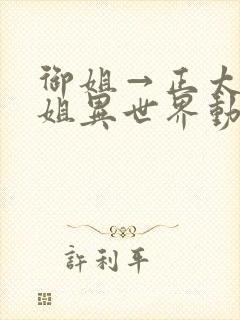 御姐→正太
姐異世界動
許利平